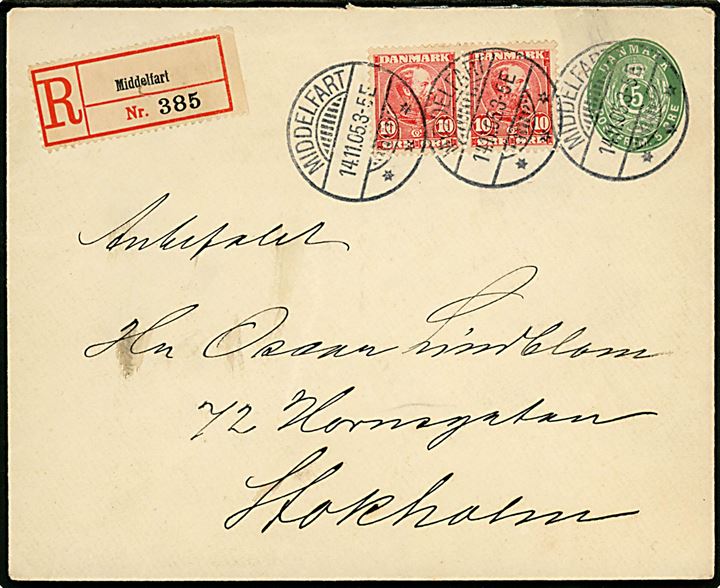 R
Middelfart
Nr. 385
DANMARK
DANMARK
10 10
ØRE
10 10
ØRE
MIDDELFART
14.11.05.3-5E
MIDDELFART
14.11.05.3-5E
MIDDELFART
14.11.05
DANMARK
5
POSTFRIM ØRE
Anbefalet
Hr Oscar Lindblom
72 Hornsgatan
Stokholm